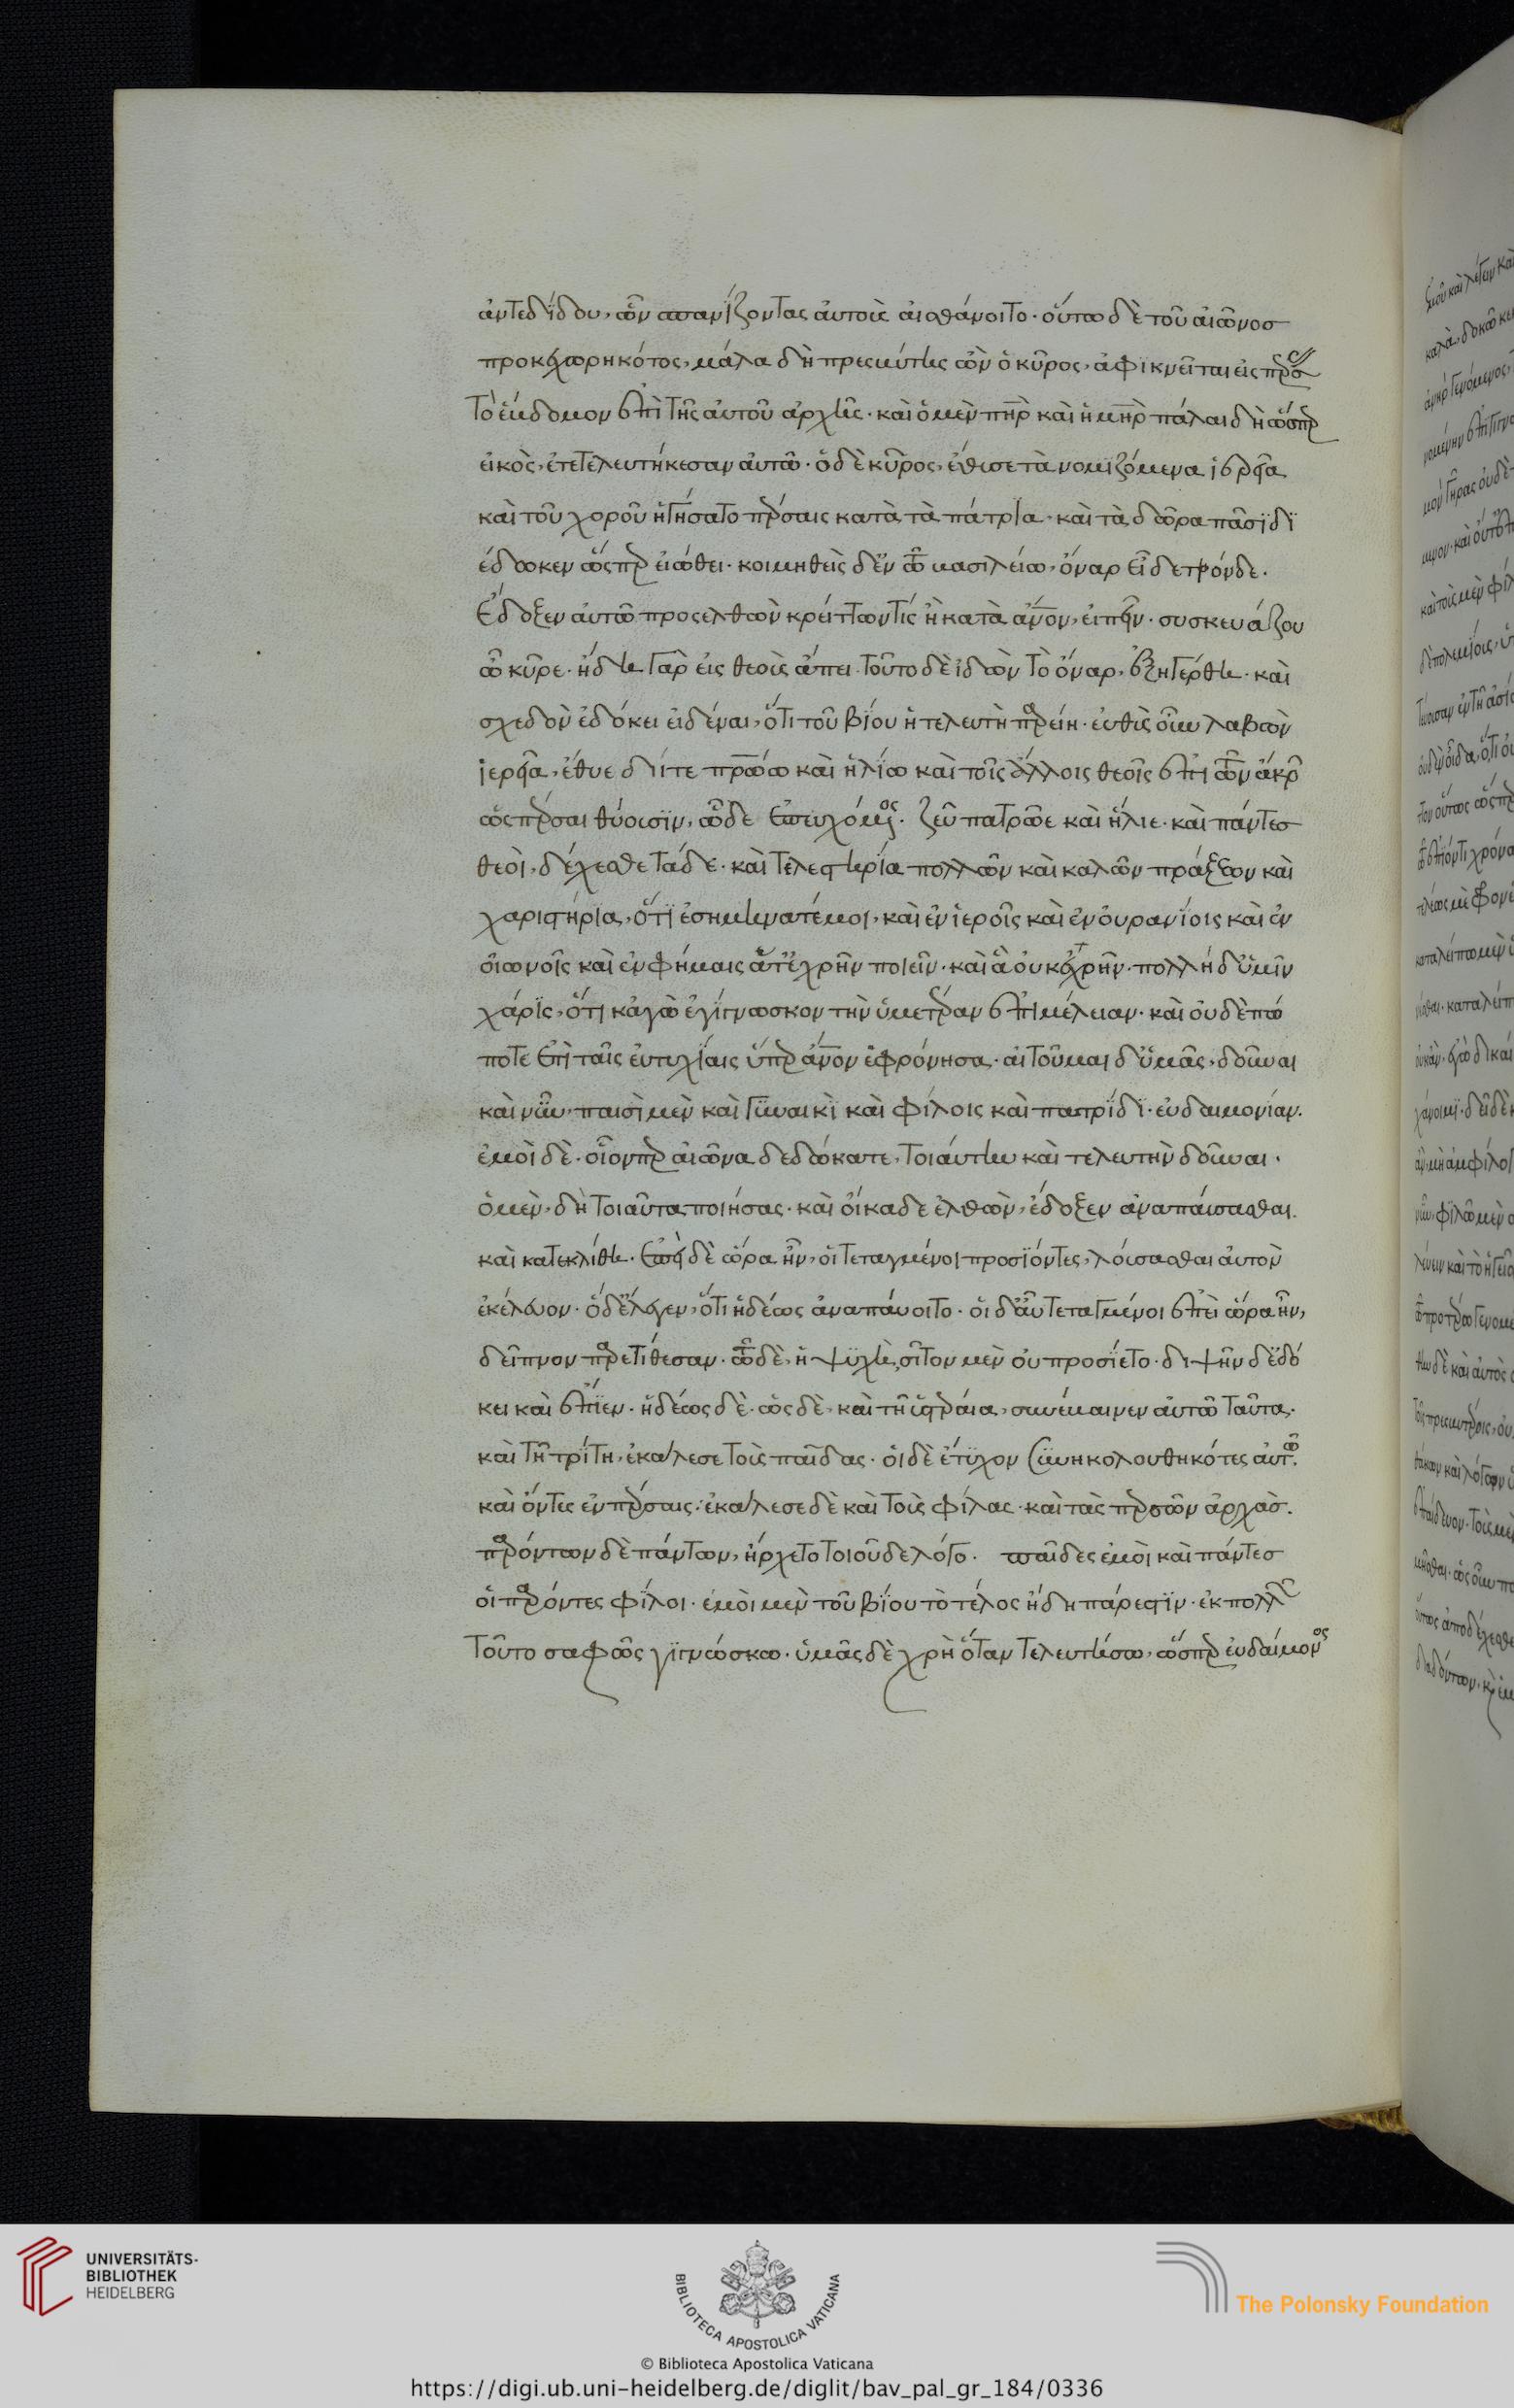 ἀντεδίδου, ὧν σπανίζοντας αὐτοὺς αἰσθάνοιτο· οὕτω δὲ τοῦ αἰῶνοσ
προκεχωρηκότος, μάλα δὴ πρεσβύτης ὢν ὁ κῦρος, ἀφικνεῖται εἰς πέρσας
Τὸ ἕβδομον ἐπὶ τῆς αὐτοῦ ἀρχῆς· καὶ ὁ μὲν πηρ καὶ ἡ μηρ πάλαι δὴ ὥσπερ
εἰκὸς, ἐτετελευτήκεσαν αὐτῶ· ὁ δὲ κῦρος, ἔθυσε τὰ νομιζόμενα ἱερεῖα
καὶ τοῦ χοροῦ ἡγήσατο πέρσαις κατὰ τὰ πάτρια· καὶ τὰ δῶρα πᾶσι δι
έδωκεν ὥσπερ εἰώθει· κοιμηθεὶς δ' ἐν τῶ βασιλείω, ὄναρ εἶδε τοιόνδε.
Ἔδοξεν αὐτῶ προσελθὼν κρείττων τίς ἢ κατὰ ἄνον, εἰπεῖν· συσκευάζου
ὦ κῦρε· ἤδη γὰρ εἰς θεοὺς ἄπει· τοῦτο δὲ ἰδὼν τὸ ὄναρ, ἐξηγέρθη· καὶ
σχεδὸν ἐδόκει εἰδέναι, ὅτι τοῦ βίου ἡ τελευτὴ παρείη· εὐθὺς οὖν λαβὼν
ἱερεῖα, ἔθυε διί τε πρώω καὶ ἡλίω καὶ τοῖς ἄλλοις θεοῖς ἐπὶ τῶν ἄκρ
ὡς πέρσαι θύουσιν, ὧδε ἐπευχόμενος· Ζεῦ πατρῶε καὶ ἥλιε· καὶ πάντεσ
θεοὶ, δέχεσθε τάδε· καὶ τελεστήρια πολλῶν καὶ καλῶν πράξεων καὶ
χαριστήρια, ὅτι ἐσημήνατέ μοι, καὶ ἐν ἱεροῖς καὶ ἐν οὐρανίοις καὶ ἐν
οἰωνοῖς καὶ ἐν φήμαις ἅ τ' ἐχρῆν ποιεῖν· καὶ ἃ οὐκ ἐχρῆν· πολλὴ δ' ὑμῖν
χάρις, ὅτι κἀγὼ ἐγίγνωσκον τὴν ὑμετέραν ἐπιμέλειαν· καὶ οὐδὲ πώ
ποτε ἐπὶ ταῖς εὐτυχίαις ὑπὲρ ἄνον ἐφρόνησα· αἰτοῦμαι δ' ὑμᾶς, δοῦναι
καὶ νῦν, παισὶ μὲν καὶ γυναικὶ καὶ φίλοις καὶ πατρίδι· εὐδαιμονίαν.
ἐμοὶ δὲ· οἷον περ αἰῶνα δεδώκατε, τοιαύτην καὶ τελευτὴν δοῦναι.
ὁ μὲν, δὴ τοιαῦτα ποιήσας· καὶ οἴκαδε ἐλθὼν, ἔδοξεν ἀναπαύσασθαι.
καὶ κατεκλίθη· ἐπεὶ δὲ ὥρα ἦν, οἱ τεταγμένοι προσιόντες, λούσασθαι αὐτὸν
ἐκέλευον· ὁ δ' ἔλεγεν, ὅτι ἡδέως ἀναπαύοιτο· οἱ δ' αὖ τεταγμένοι ἐπεὶ ὥρα ἦν,
δεῖπνον παρετίθεσαν· τῶ δὲ, ἡ ψυχὴ, σῖτον μὲν οὐ προσίετο· διψῆν δ' ἐδό
κει καὶ ἔπιεν· ἡδέως δὲ· ὡς δὲ, καὶ τῆ ὑστεραία, συνέβαινεν αὐτῶ ταῦτα.
καὶ τῆ τρίτη, ἐκάλεσε τοὺς παῖδας· οἱ δὲ ἔτυχον συνηκολουθηκότες αὐτῶ.
καὶ ὄντες ἐν πέρσαις· ἐκάλεσε δὲ καὶ τοὺς φίλους· καὶ τὰς περσῶν ἀρχάσ.
παρόντων δὲ πάντων, ἤρχετο τοιοῦδε λόγου. παῖδες ἐμοὶ καὶ πάντεσ
οἱ παρόντες φίλοι· ἐμοὶ μὲν τοῦ βίου τὸ τέλος ἤδη πάρεστιν· ἐκ πολλῶν
Τοῦτο σαφῶς γιγνώσκω· ὑμᾶς δὲ χρὴ ὅταν τελευτήσω, ὥσπερ εὐδαίμονος
UNIVERSITÄTS-
BIBLIOTHEK
HEIDELBERG
BIBLIOTECA APOSTOLICA VATICANA
The Polonsky Foundation
© Biblioteca Apostolica Vaticana
https://digi.ub.uni-heidelberg.de/diglit/bav_pal_gr_184/0336